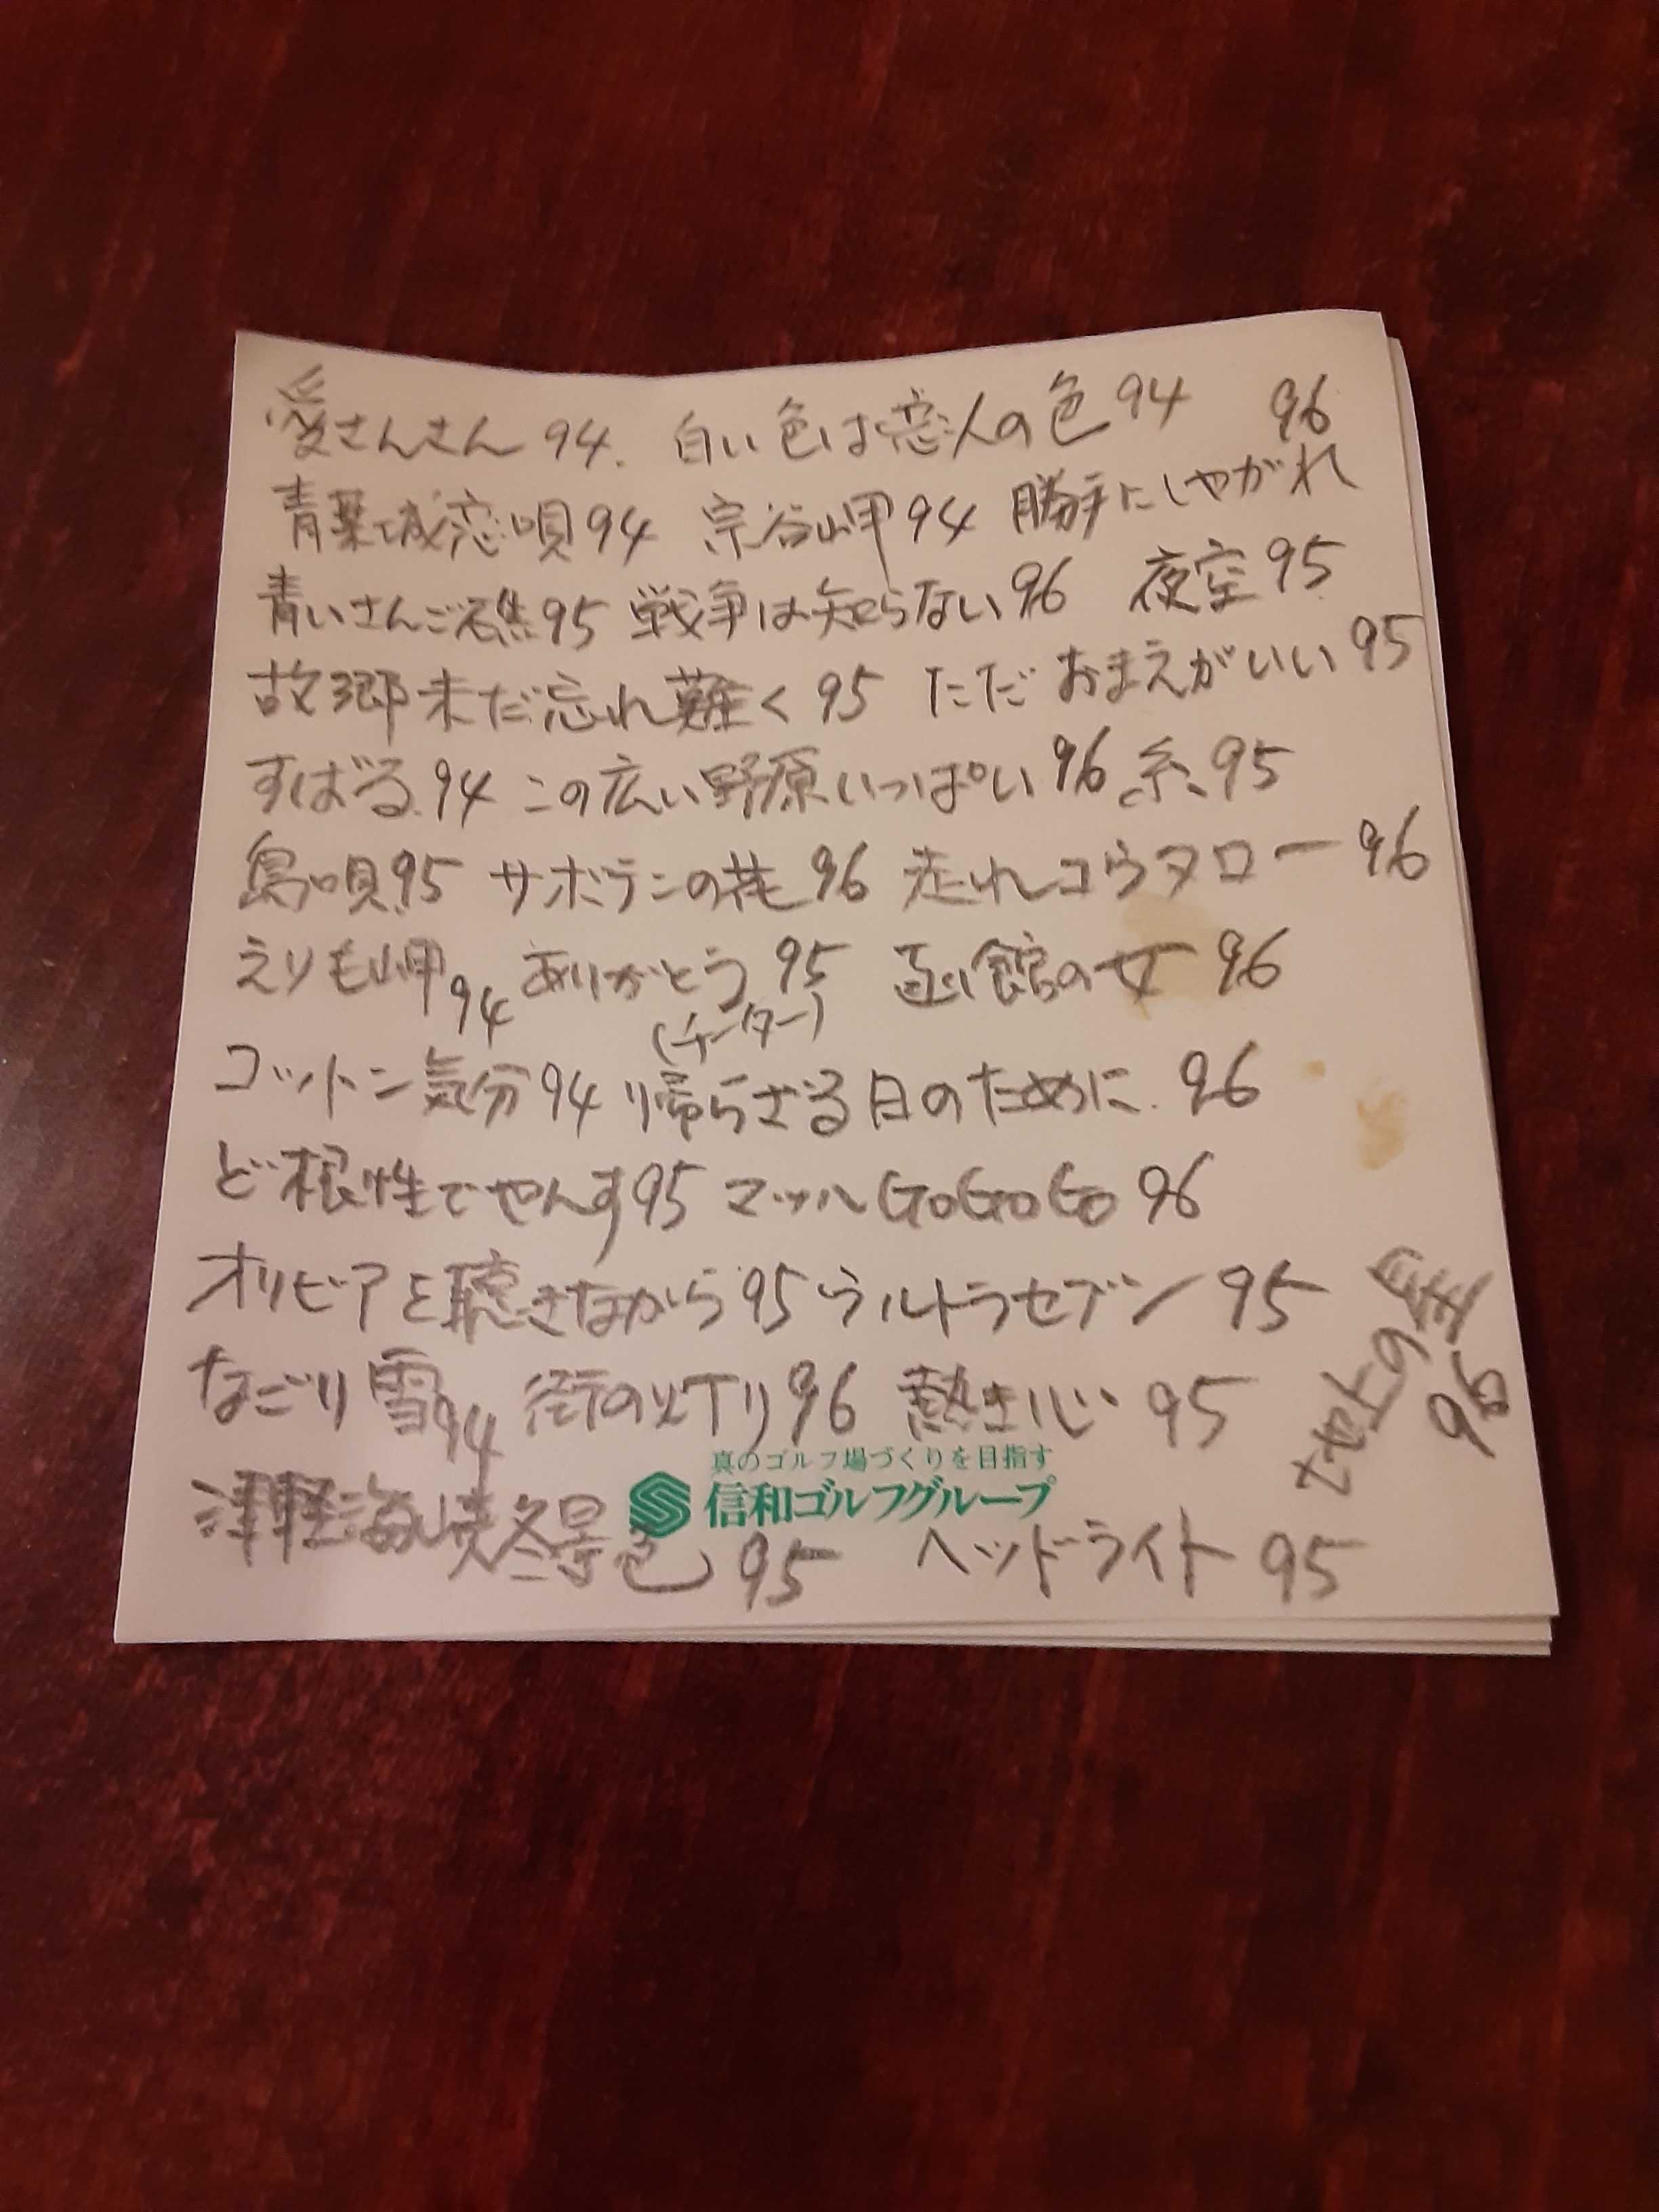 愛さんさん 94. 白い色は恋人の色 94 96
青葉城恋唄 94 宗谷岬 94 勝手にしやがれ
青いさんご礁 95 戦争は知らない 96 夜空 95
故郷未だ忘れ難く 95 ただおまえがいい 95
すばる 94 この広い野原いっぱい 96 糸 95
島唄 95 サボテンの花 96 走れコウタロー 96
えりも岬 94 ありがとう 95 函館の女 96
(チーター)
コットン気分 94 帰らざる日のために 96
ど根性でやんす 95 マッハGoGoGo 96
オリビアを聴きながら 95 ウルトラセブン 95
なごり雪 94 街の灯り 96 熱き心 95
の星 95
真のゴルフ場づくりを目指す
信和ゴルフグループ
津軽海峡冬景色 95 ヘッドライト 95